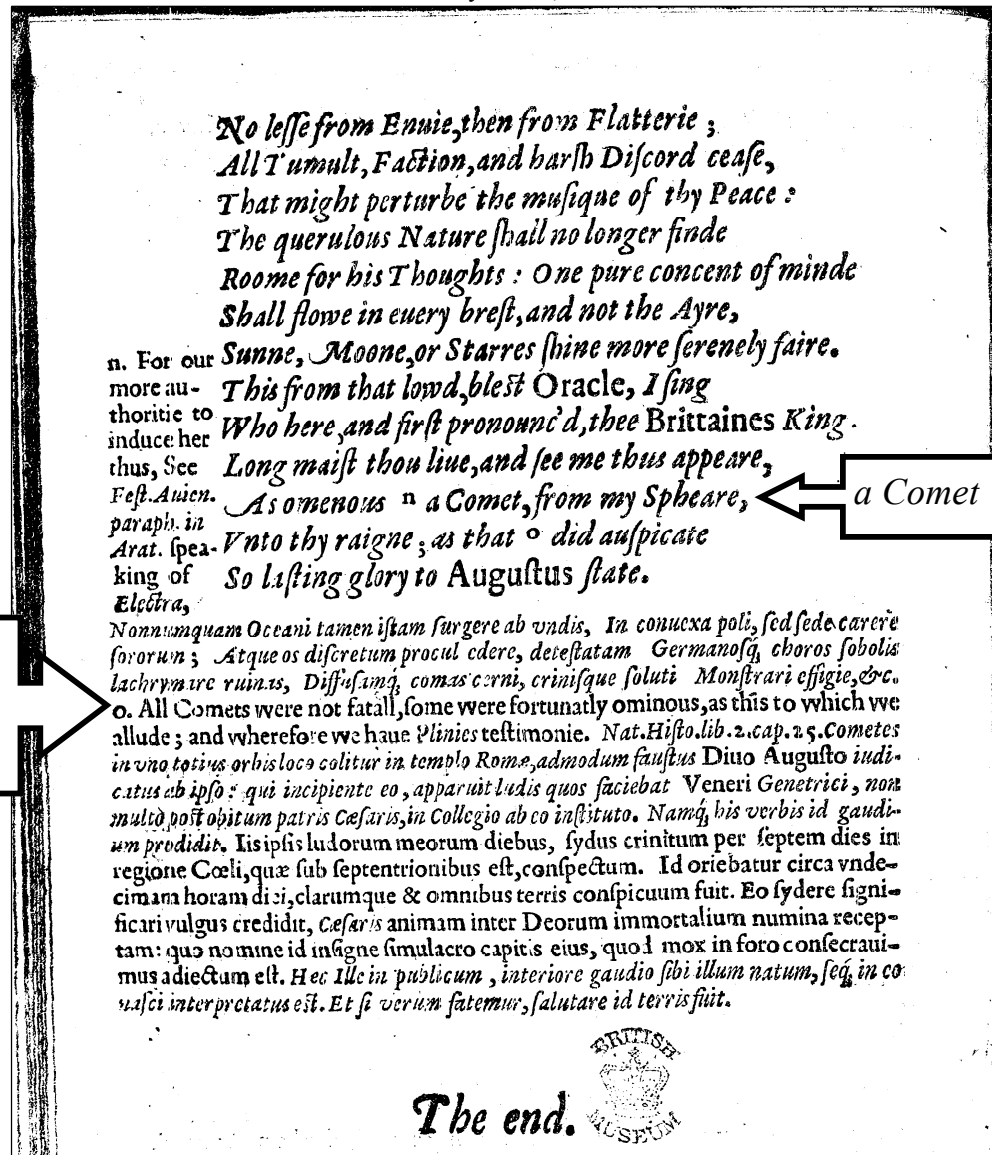 No lesse from Enuie, then from Flatterie ;
All Tumult, Faction, and harsh Discord cease,
That might perturbe the musique of thy Peace :
The querulous Nature shall no longer finde
Roome for his Thoughts : One pure concent of minde
Shall flowe in euery brest, and not the Ayre,
Sunne, Moone, or Starres shine more serenely faire.
This from that lowd, blest Oracle, I sing
Who here, and first pronounc'd, thee Brittaines King.
Long maist thou liue, and see me thus appeare,
As omenous ⁿ a Comet, from my Spheare,
Vnto thy raigne ; as that ᵒ did auspicate
So lasting glory to Augustus state.
a Comet
n. For our
more au-
thoritie to
induce her
thus, See
Fest. Auien.
paraph. in
Arat. spea-
king of
Electra,
Nonnumquam Oceani tamen istam surgere ab vndis, In conuexa poli, sed sede carere
sororum ; Atque os discretum procul edere, detestatam Germanosq́; choros sobolis
lachrymare ruinas, Diffusamq́; comas cerni, crinisque soluti Monstrari effigie, &c.
o. All Comets were not fatall, some were fortunatly ominous, as this to which we
allude ; and wherefore we haue Plinies testimonie. Nat. Histo. lib. 2. cap. 25. Cometes
in vno totius orbis loco colitur in templo Romæ, admodum faustus Diuo Augusto iudi-
catus ab ipso : qui incipiente eo, apparuit ludis quos faciebat Veneri Genetrici, non
multò post obitum patris Cæsaris, in Collegio ab eo instituto. Namq́; his verbis id gaudi-
um prodidit. Iis ipsis ludorum meorum diebus, sydus crinitum per septem dies in
regione Cœli, quæ sub septentrionibus est, conspectum. Id oriebatur circa vnde-
cimam horam diei, clarumque & omnibus terris conspicuum fuit. Eo sydere signi-
ficari vulgus credidit, Cæsaris animam inter Deorum immortalium numina recep-
tam: quo nomine id insigne simulacro capitis eius, quod mox in foro consecraui-
mus adiectum est. Hec Ille in publicum, interiore gaudio sibi illum natum, seq́; in eo
nasci interpretatus est. Et si verum fatemur, salutare id terris fuit.
The end.
BRITISH
MUSEUM